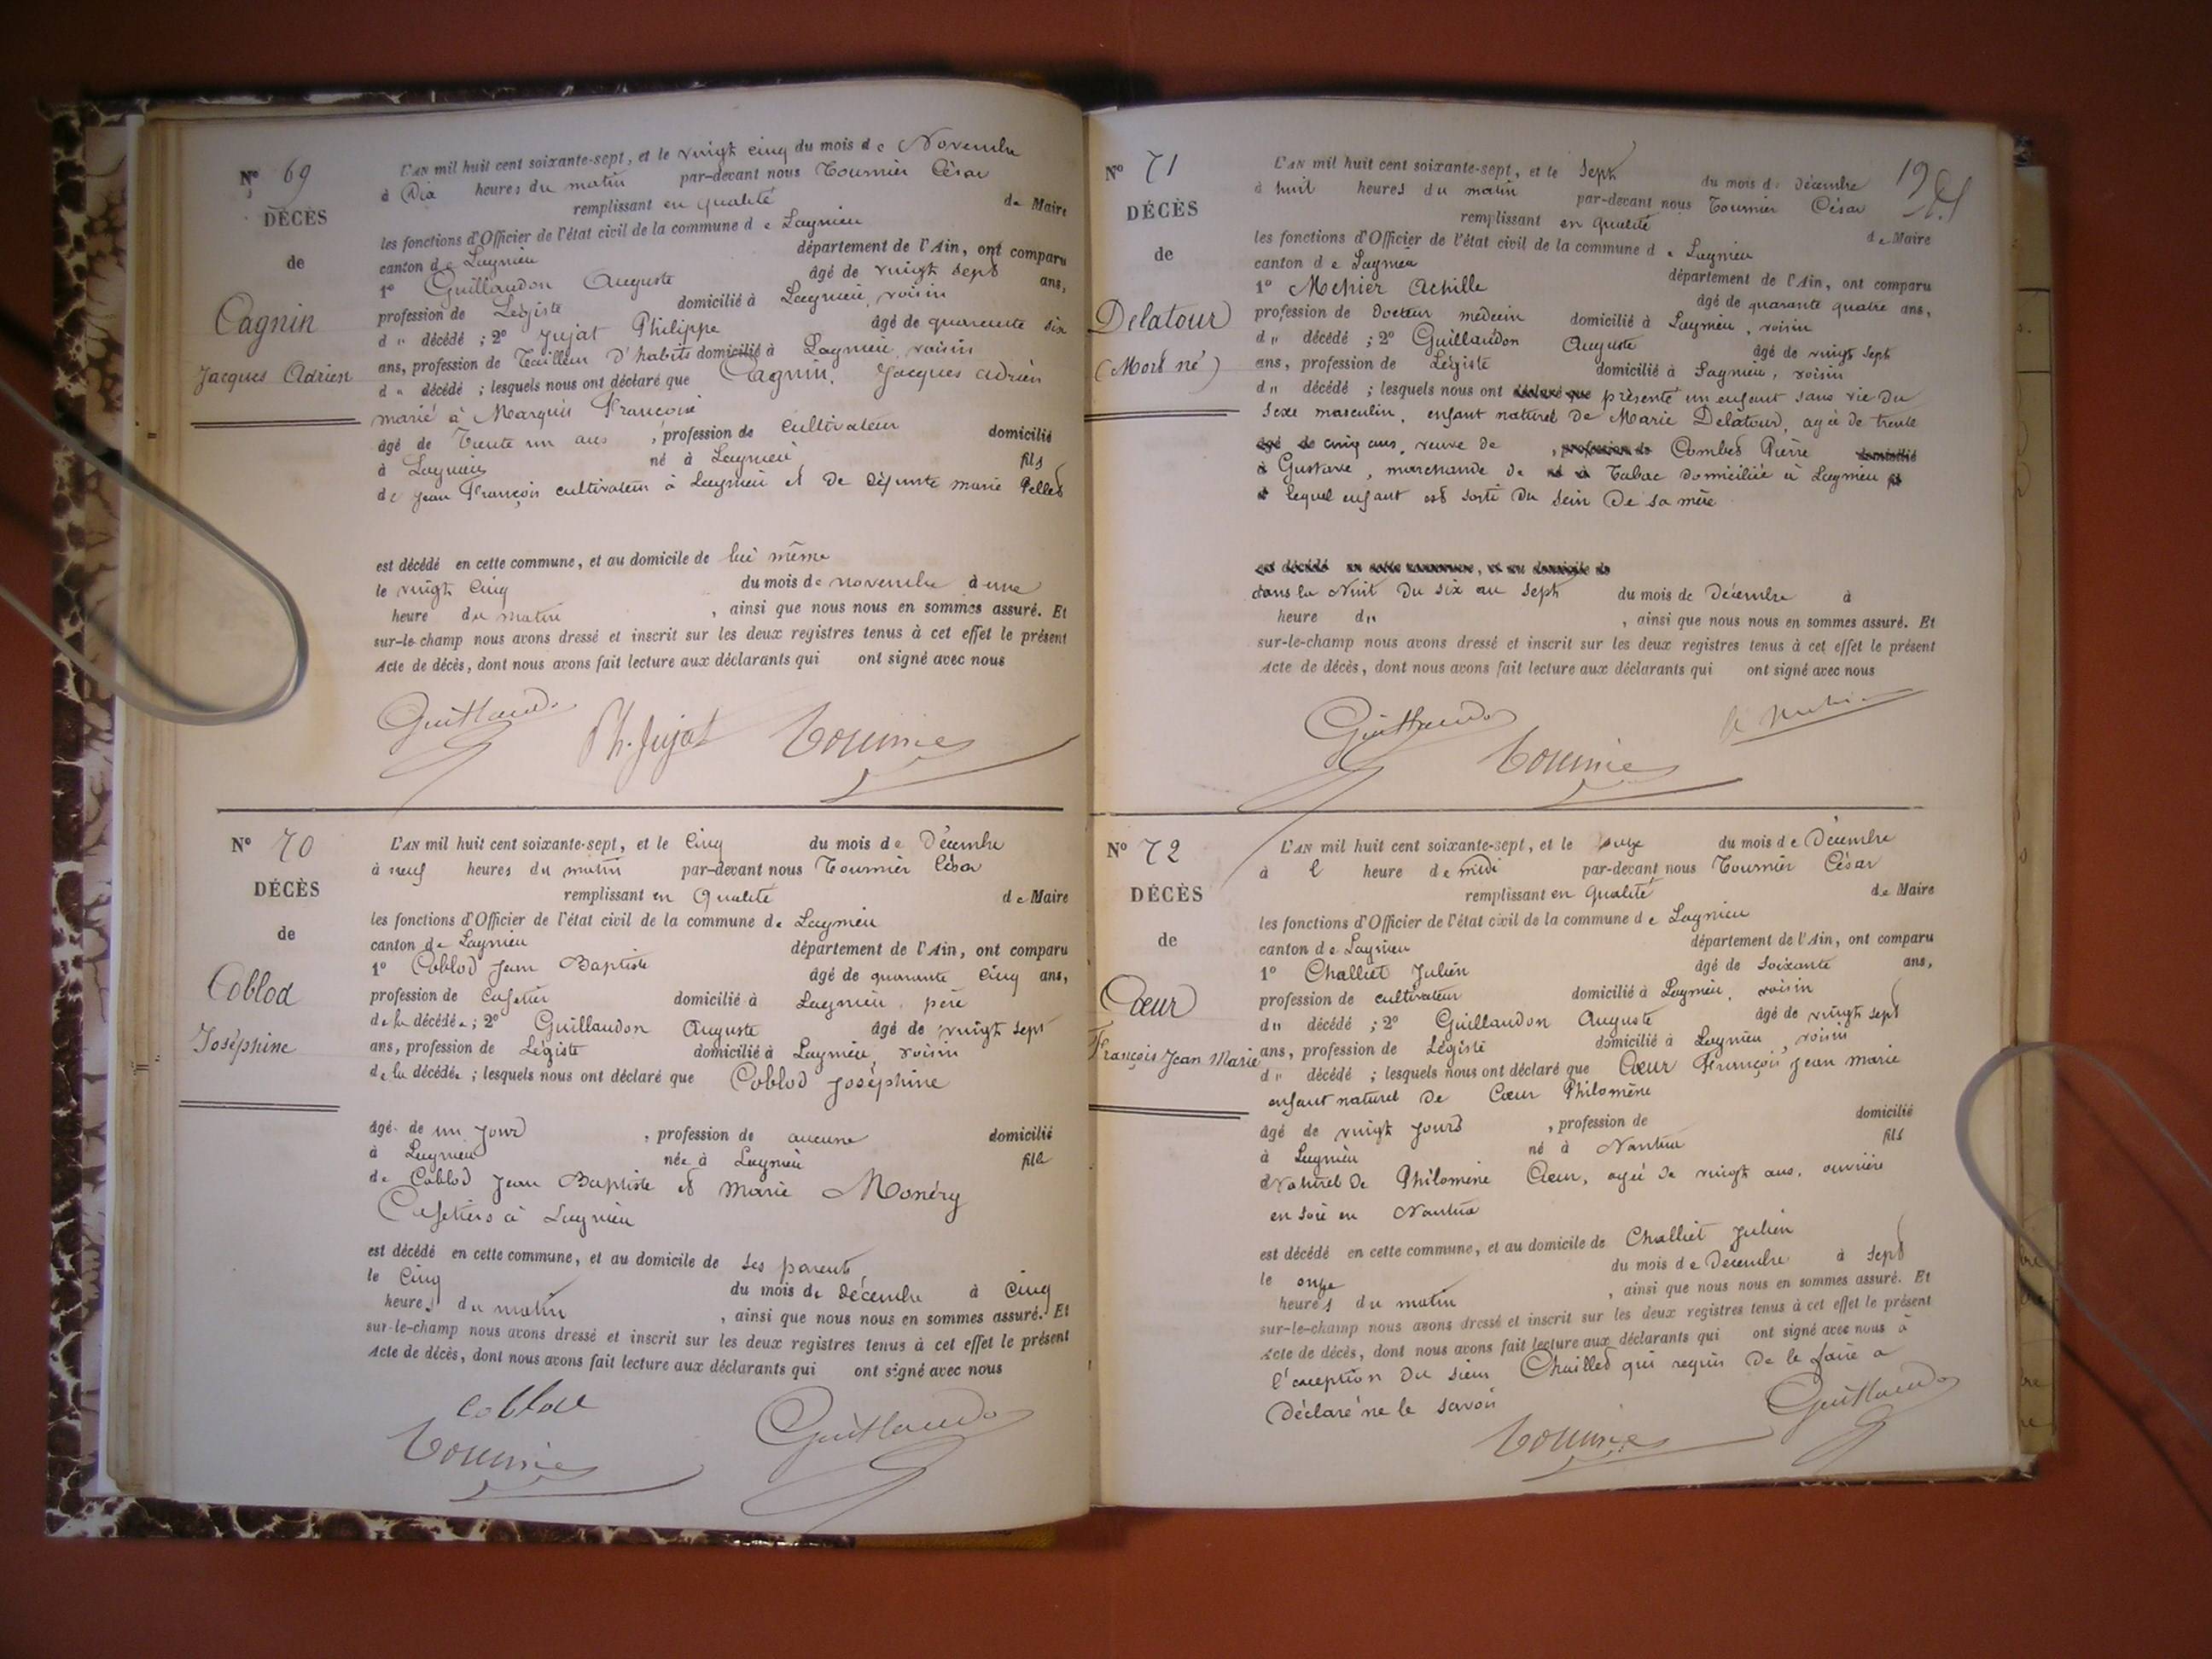 N° 69
DÉCÈS
de
Cagnin
Jacques Adrien
L'AN mil huit cent soixante-sept, et le vingt cinq du mois de Novembre
à Dix heures du matin par-devant nous Tournier César
remplissant en qualité de Maire
les fonctions d'Officier de l'état civil de la commune de Lagnieu
canton de Lagnieu département de l'Ain, ont comparu
1° Guillaudon Auguste âgé de vingt sept ans,
profession de Légiste domicilié à Lagnieu, voisin
d " décédé ; 2° Jujat Philippe âgé de quarante six
ans, profession de Tailleur d'habits domicilié à Lagnieu, voisin
d " décédé ; lesquels nous ont déclaré que Cagnin, Jacques Adrien
marié à Marquis Françoise
âgé de Trente un ans, profession de Cultivateur domicilié
à Lagnieu né à Lagnieu fils
de Jean François cultivateur à Lagnieu et de défunte marie Pellet
est décédé en cette commune, et au domicile de lui même
le vingt cinq du mois de novembre à une
heure du matin, ainsi que nous nous en sommes assuré. Et
sur-le-champ nous avons dressé et inscrit sur les deux registres tenus à cet effet le présent
Acte de décès, dont nous avons fait lecture aux déclarants qui ont signé avec nous
Guillaudon Ph. Jujat Tournier
N° 70
DÉCÈS
de
Coblod
Joséphine
L'AN mil huit cent soixante-sept, et le Cinq du mois de Décembre
à neuf heures du matin par-devant nous Tournier César
remplissant en Qualité de Maire
les fonctions d'Officier de l'état civil de la commune de Lagnieu
canton de Lagnieu département de l'Ain, ont comparu
1° Coblod Jean Baptiste âgé de quarante Cinq ans,
profession de Cafetier domicilié à Lagnieu, père
de la décédée ; 2° Guillaudon Auguste âgé de vingt sept
ans, profession de Légiste domicilié à Lagnieu, voisin
de la décédée ; lesquels nous ont déclaré que Coblod Joséphine
âgé de un jour, profession de aucune domicilié
à Lagnieu née à Lagnieu fille
de Coblod Jean Baptiste et Marie Monéry
Cafetiers à Lagnieu
est décédé en cette commune, et au domicile de ses parents
le Cinq du mois de décembre à Cinq
heures du matin, ainsi que nous nous en sommes assuré. Et
sur-le-champ nous avons dressé et inscrit sur les deux registres tenus à cet effet le présent
Acte de décès, dont nous avons fait lecture aux déclarants qui ont signé avec nous
Coblod
Tournier Guillaudon
N° 71
DÉCÈS
de
Delatour
(Mort né)
L'AN mil huit cent soixante-sept, et le Sept du mois de Décembre
à huit heures du matin par-devant nous Tournier César
remplissant en qualité de Maire
les fonctions d'Officier de l'état civil de la commune de Lagnieu
canton de Lagnieu département de l'Ain, ont comparu
1° Mehier Achille âgé de quarante quatre ans,
profession de Docteur médecin domicilié à Lagnieu, voisin
d " décédé ; 2° Guillaudon Auguste âgé de vingt sept
ans, profession de Légiste domicilié à Lagnieu, voisin
d " décédé ; lesquels nous ont déclaré que présenté un enfant sans vie du
sexe masculin, enfant naturel de Marie Delatour, agée de trente
âgé de cinq ans, veuve de, profession de Combet Pierre domicilié
à Gustave, marchande de né à Tabac domiciliée à Lagnieu
lequel enfant est sorti du sein de sa mère
est décédé en cette commune, et au domicile de
dans la Nuit du six au sept du mois de Décembre à
heure d ", ainsi que nous nous en sommes assuré. Et
sur-le-champ nous avons dressé et inscrit sur les deux registres tenus à cet effet le présent
Acte de décès, dont nous avons fait lecture aux déclarants qui ont signé avec nous
Guillaudon Tournier
N° 72
DÉCÈS
de
Cœur
François Jean Marie
L'AN mil huit cent soixante-sept, et le du mois de Décembre
à l heure de midi par-devant nous Tournier César
remplissant en qualité de Maire
les fonctions d'Officier de l'état civil de la commune de Lagnieu
canton de Lagnieu département de l'Ain, ont comparu
1° Challiet Julien âgé de soixante ans,
profession de cultivateur domicilié à Lagnieu, voisin
d " décédé ; 2° Guillaudon Auguste âgé de vingt sept
ans, profession de Légiste domicilié à Lagnieu, voisin
d " décédé ; lesquels nous ont déclaré que Cœur François Jean marie
enfant naturel de Cœur Philomène
âgé de vingt jours, profession de domicilié
à Lagnieu né à Nantua fils
naturel de Philomène Cœur, agée de vingt ans, ouvrière
en soie en Nantua
est décédé en cette commune, et au domicile de Challiet Julien
le onze du mois de Décembre à sept
heures du matin, ainsi que nous nous en sommes assuré. Et
sur-le-champ nous avons dressé et inscrit sur les deux registres tenus à cet effet le présent
Acte de décès, dont nous avons fait lecture aux déclarants qui ont signé avec nous à
l'exception du sieur Chaillet qui requis de le faire a
Déclaré ne le savoir
Tournier Guillaudon